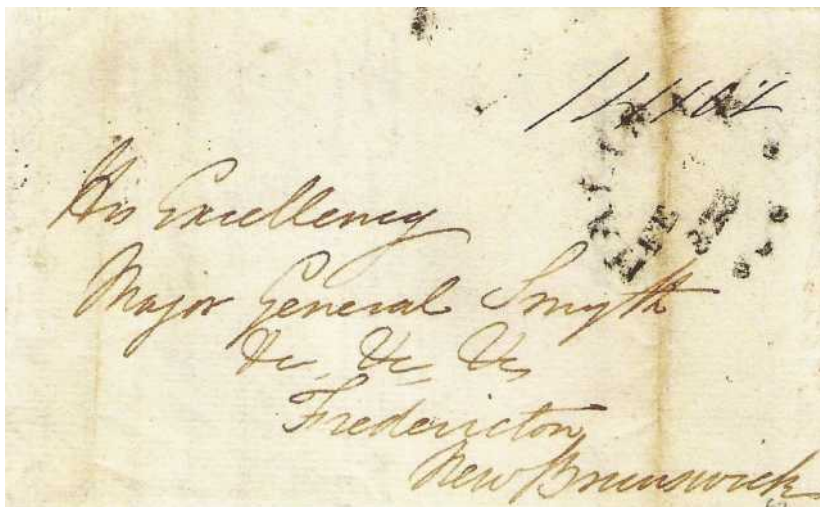 His Excellency
Major General Smyth
&c, &c, &c,
Fredericton
New Brunswick